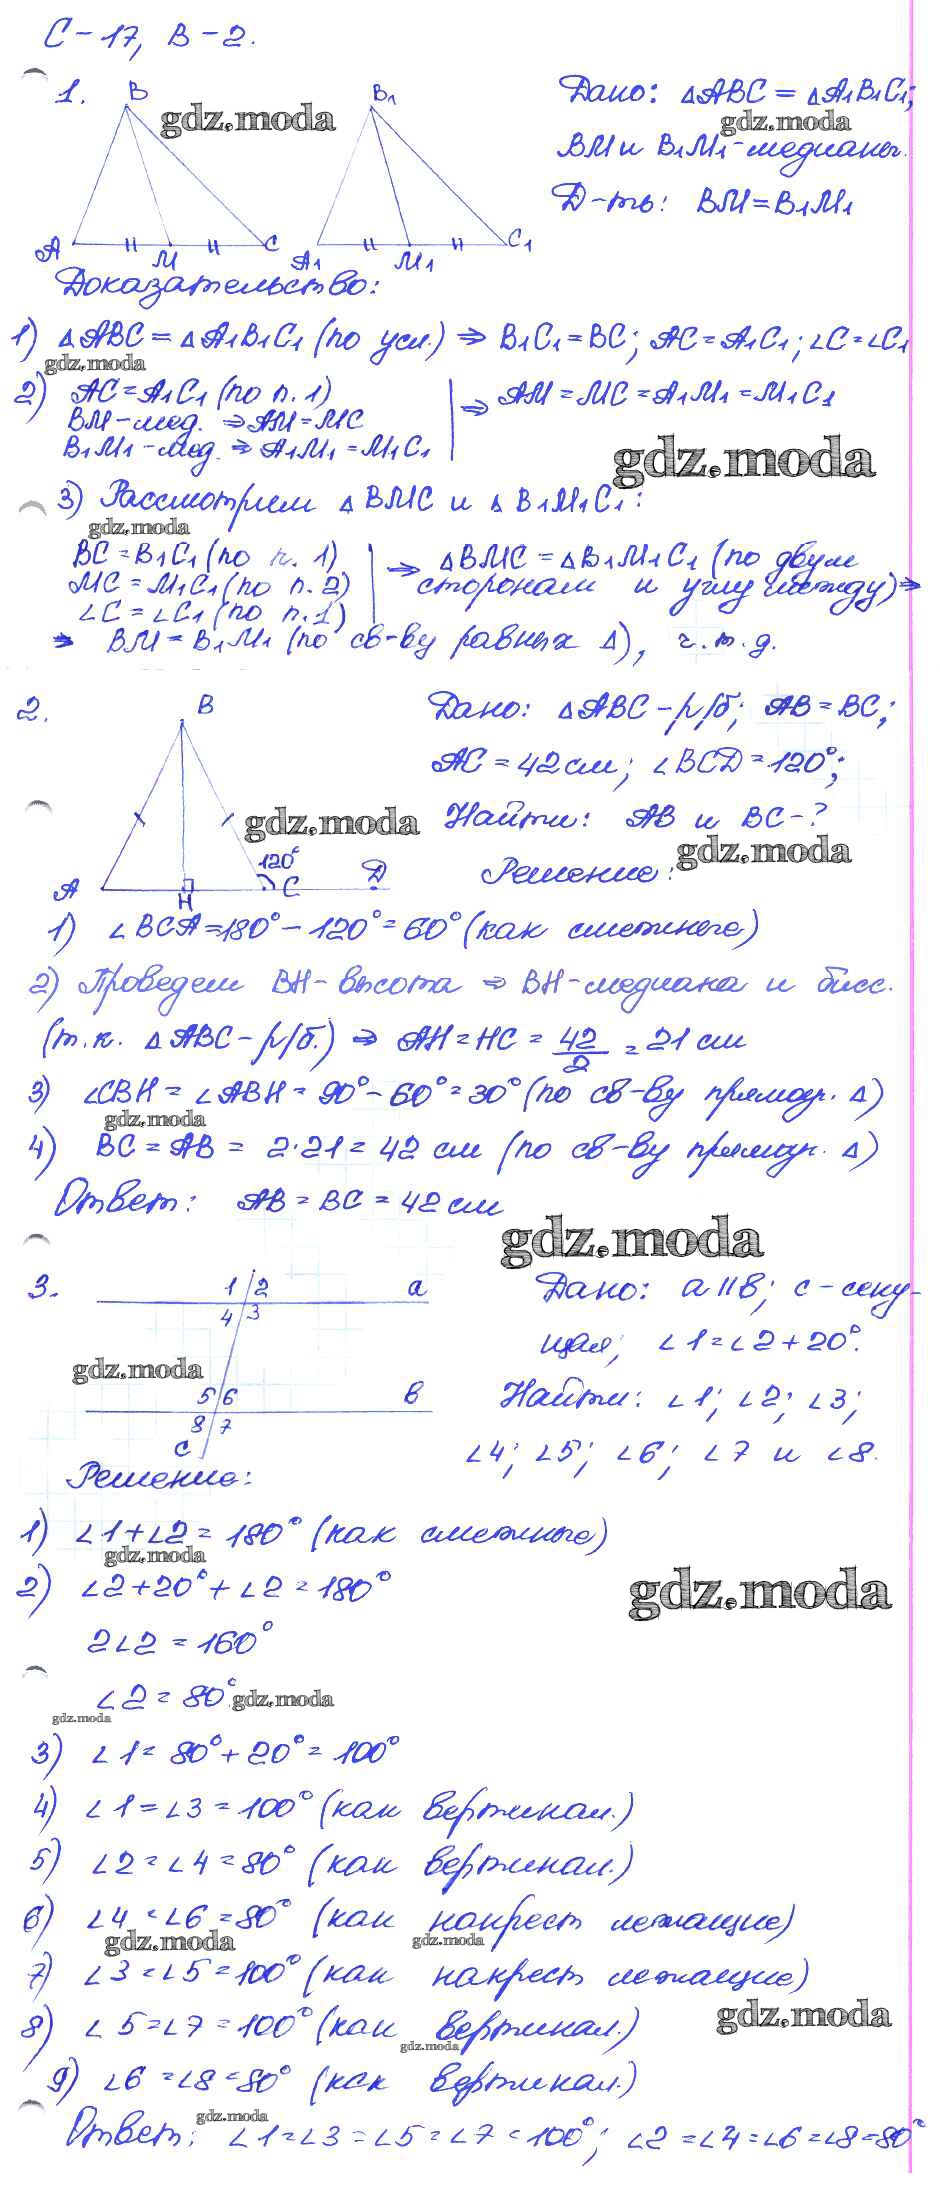 С-17, В-2.
1.
B
B1
A
M
C
A1
M1
C1
gdz.moda
Дано: ΔABC = ΔA1B1C1;
gdz.moda
BM и B1M1-медианы.
Д-ть: BM=B1M1
Доказательство:
1) ΔABC = ΔA1B1C1 (по усл.) ⇒ B1C1=BC; AC=A1C1; ∠C=∠C1
gdz.moda
2) AC=A1C1 (по п.1)
BM-мед. ⇒ AM=MC
B1M1-мед. ⇒ A1M1=M1C1
⇒ AM=MC=A1M1=M1C1
gdz.moda
3) Рассмотрим ΔBMC и ΔB1M1C1:
gdz.moda
BC=B1C1 (по п. 1)
MC=M1C1 (по п. 2)
∠C=∠C1 (по п.1)
⇒ ΔBMC=ΔB1M1C1 (по двум
сторонам и углу между) ⇒
⇒ BM=B1M1 (по св-ву равных Δ), ч.т.д.
2.
B
A
H
120°
C
D
gdz.moda
Дано: ΔABC-р/б; AB=BC;
AC=42см; ∠BCD=120°;
Найти: AB и BC-?
gdz.moda
Решение:
1) ∠BCA=180°-120°=60° (как смежного)
2) Проведем BH-высота ⇒ BH-медиана и бисс.
(т.к. ΔABC-р/б.) ⇒ AH=HC=42/2=21 см
3) ∠CBH=∠ABH=90°-60°=30° (по св-ву прямоуг. Δ)
gdz.moda
4) BC=AB= 2·21=42 см (по св-ву прямоуг. Δ)
Ответ: AB=BC=42см
gdz.moda
3.
1 2
a
4 3
5 6
b
8 7
c
gdz.moda
Дано: a||b; c-секу-
щая; ∠1=∠2+20°.
Найти: ∠1; ∠2; ∠3;
∠4; ∠5; ∠6; ∠7 и ∠8.
Решение:
1) ∠1+∠2=180° (как смежные)
gdz.moda
2) ∠2+20°+∠2=180°
gdz.moda
2∠2=160°
∠2=80°
gdz.moda
gdz.moda
3) ∠1=80°+20°=100°
4) ∠1=∠3=100° (как вертикал.)
5) ∠2=∠4=80° (как вертикал.)
6) ∠4=∠6=80° (как накрест лежащие)
gdz.moda
gdz.moda
7) ∠3=∠5=100° (как накрест лежащие)
8) ∠5=∠7=100° (как вертикал.)
gdz.moda
gdz.moda
9) ∠6=∠8=80° (как вертикал.)
gdz.moda
Ответ: ∠1=∠3=∠5=∠7=100°; ∠2=∠4=∠6=∠8=80°